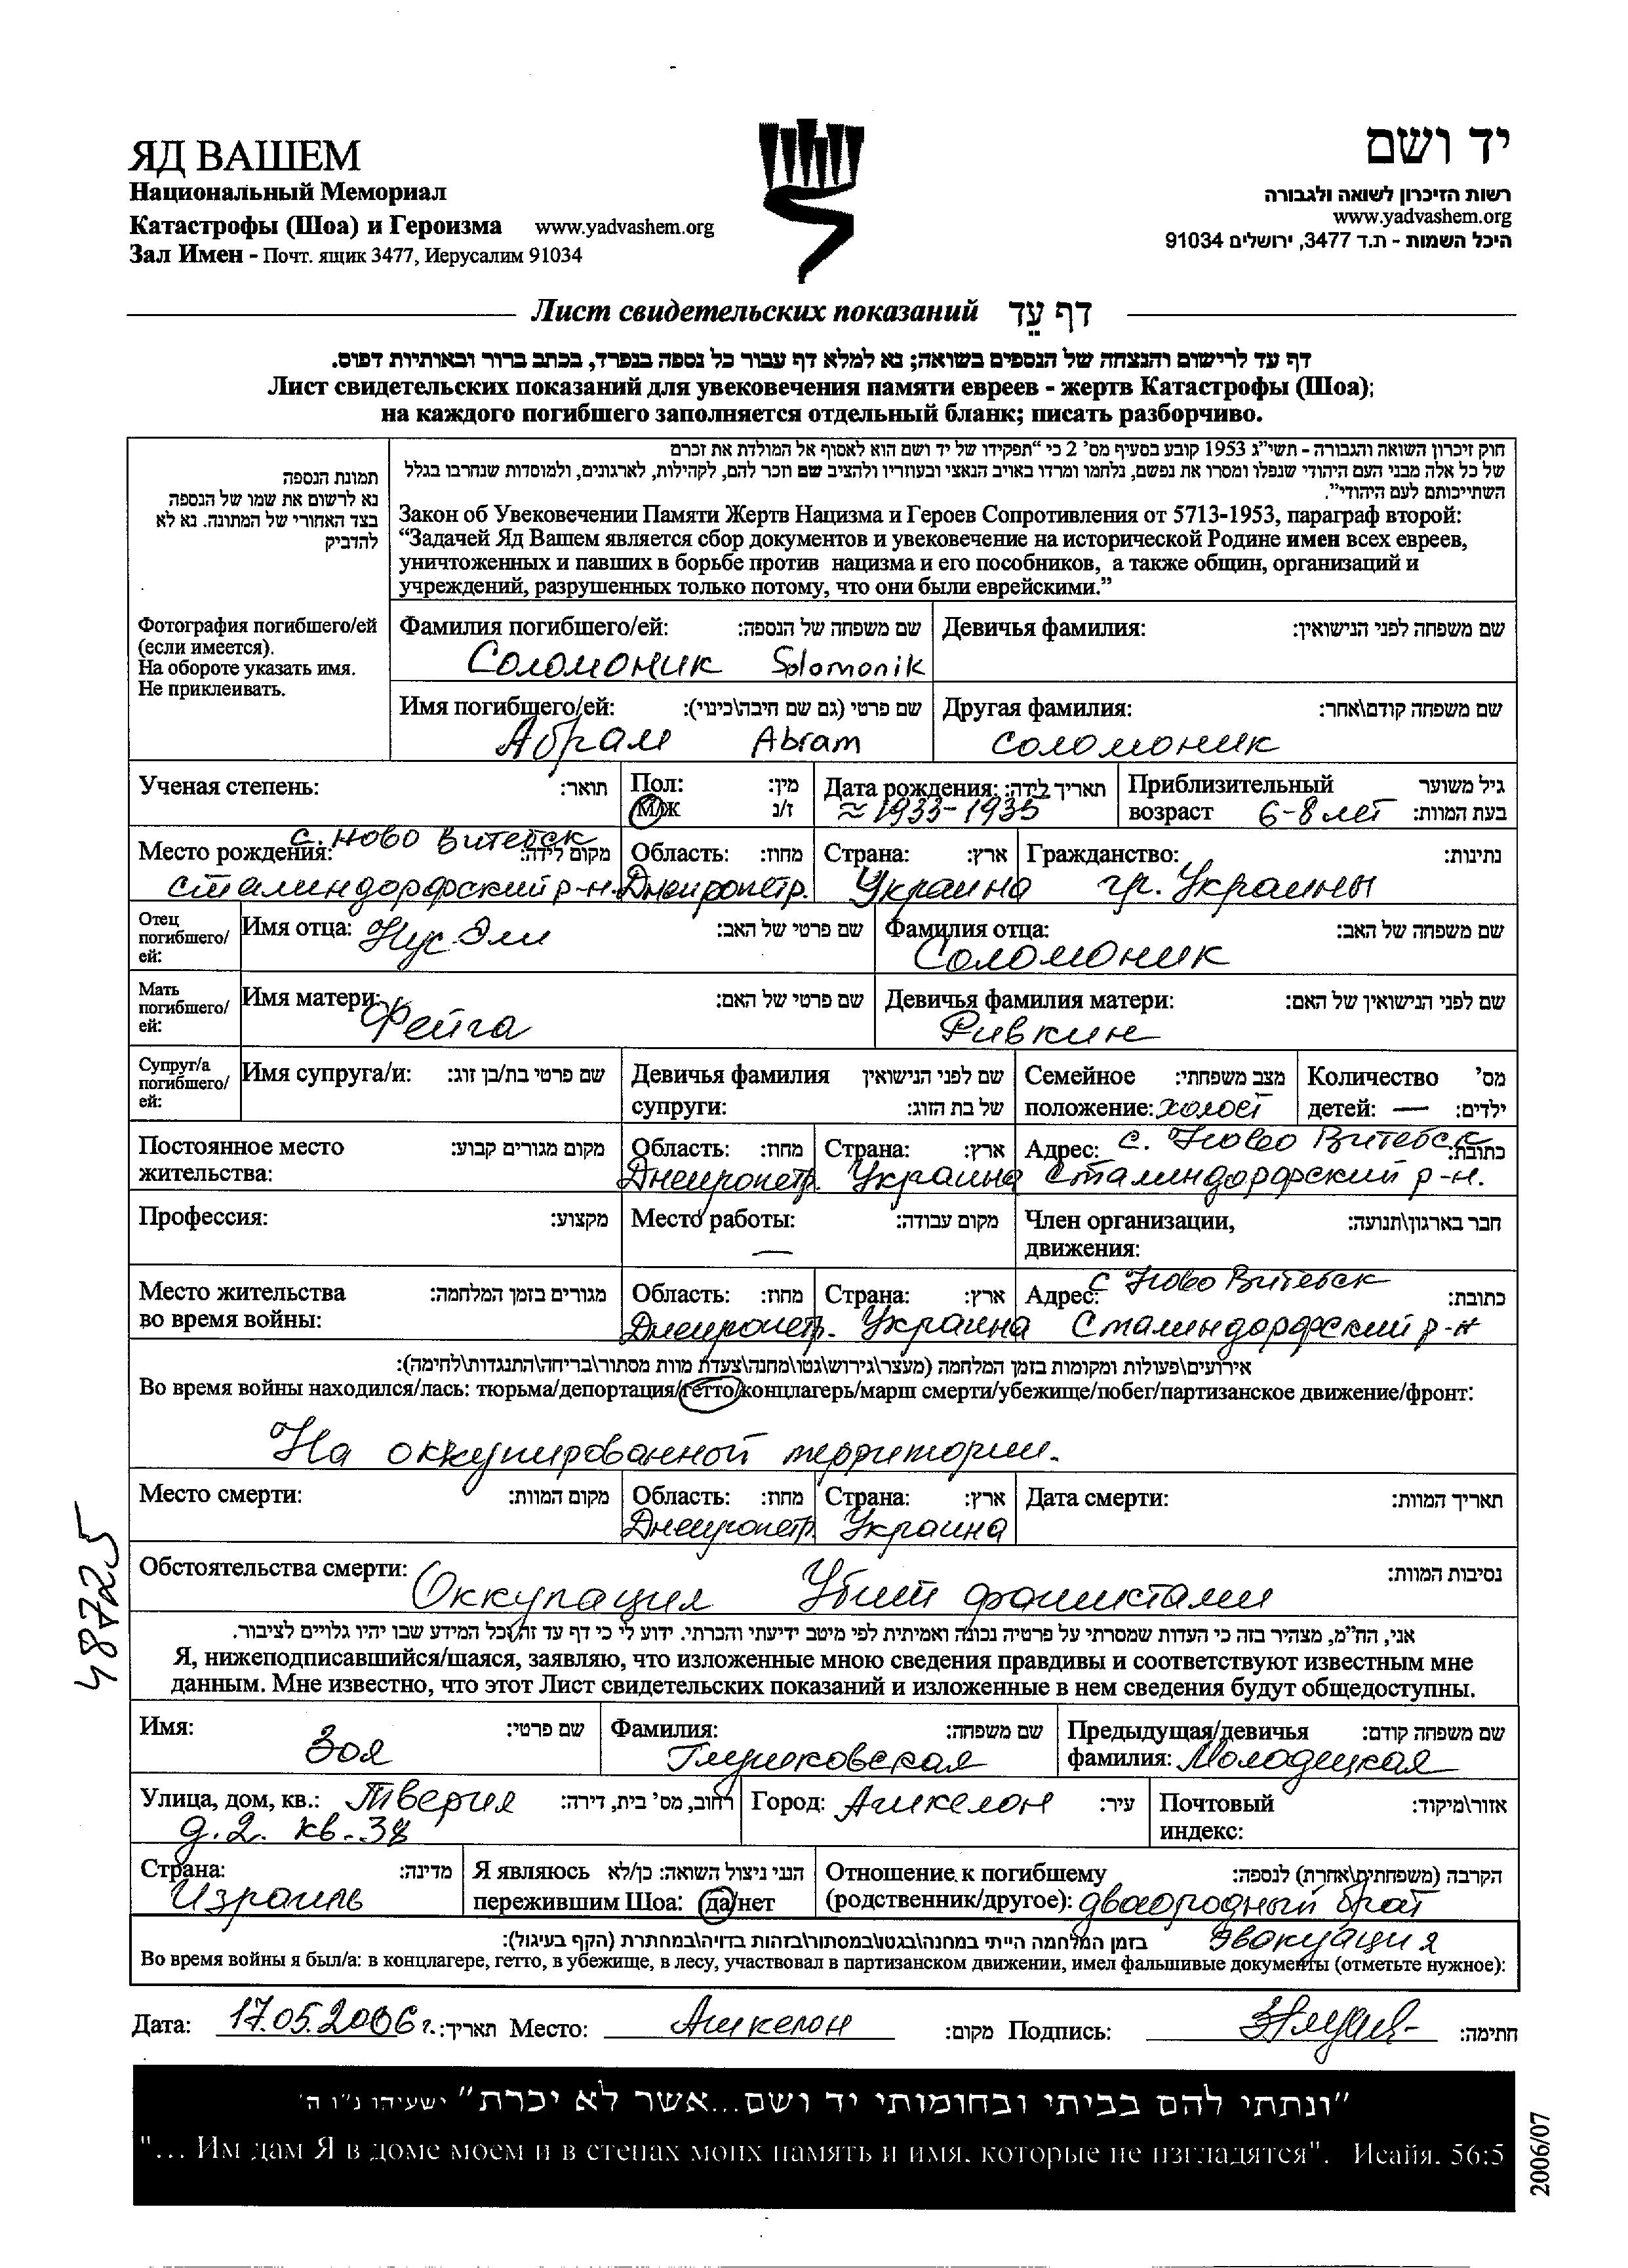 ЯД ВАШЕМ
Национальный Мемориал
Катастрофы (Шоа) и Героизма www.yadvashem.org
Зал Имен - Почт. ящик 3477, Иерусалим 91034
יד ושם
רשות הזיכרון לשואה ולגבורה
www.yadvashem.org
היכל השמות - ת.ד 3477, ירושלים 91034
Лист свидетельских показаний דף עֵד
דף עד לרישום והנצחה של הנספים בשואה; נא למלא דף עבור כל נספה בנפרד, בכתב ברור ובאותיות דפוס.
Лист свидетельских показаний для увековечения памяти евреев - жертв Катастрофы (Шоа);
на каждого погибшего заполняется отдельный бланк; писать разборчиво.
תמונת הנספה
נא לרשום את שמו של הנספה
בצד האחורי של המתונה. נא לא
להדביק
Фотография погибшего/ей
(если имеется).
На обороте указать имя.
Не приклеивать.
חוק זיכרון השואה והגבורה - תשי"ג 1953 קובע בסעיף מס' 2 כי "תפקידו של יד ושם הוא לאסוף אל המולדת את זכרם
של כל אלה מבני העם היהודי שנפלו ומסרו את נפשם, נלחמו ומרדו באויב הנאצי ובעוזריו ולהציב שם וזכר להם, לקהילות, לארגונים, ולמוסדות שנחרבו בגלל
השתייכותם לעם היהודי".
Закон об Увековечении Памяти Жертв Нацизма и Героев Сопротивления от 5713-1953, параграф второй:
"Задачей Яд Вашем является сбор документов и увековечение на исторической Родине имен всех евреев,
уничтоженных и павших в борьбе против нацизма и его пособников, а также общин, организаций и
учреждений, разрушенных только потому, что они были еврейскими."
Фамилия погибшего/ей: שם משפחה של הנספה: Девичья фамилия: שם משפחה לפני הנישואין:
Соломоник Solomonik
Имя погибшего/ей: שם פרטי (גם שם חיבה\כינוי): Другая фамилия: שם משפחה קודם\אחר:
Абрам Abram соломоник
Ученая степень: תואר: Пол: מין: Дата рождения: תאריך לידה: Приблизительный גיל משוער
М/Ж ז/נ ≈ 1933-1935 возраст 6-8 лет בעת המוות:
с. Ново Витебск
Место рождения: מקום לידה: Область: מחוז: Страна: ארץ: Гражданство: נתינות:
сталиндорфский р-н. Днепропетр. Украина гр. Украины
Отец погибшего/ей: Имя отца: Нус-Эли שם פרטי של האב: Фамилия отца: שם משפחה של האב:
Соломоник
Мать погибшего/ей: Имя матери: שם פרטי של האם: Девичья фамилия матери: שם לפני הנישואין של האם:
Фейга Ривкин
Супруг/а погибшего/ей: Имя супруга/и: שם פרטי בת/בן זוג: Девичья фамилия שם לפני הנישואין Семейное מצב משפחתי: Количество מס'
супруги: של בת הזוג: положение: холост детей: — ילדים:
Постоянное место מקום מגורים קבוע: Область: מחוז: Страна: ארץ: Адрес: с. Ново Витебск כתובת:
жительства: Днепропетр. Украина Сталиндорфский р-н.
Профессия: מקצוע: Место работы: מקום עבודה: Член организации, חבר בארגון\תנועה:
— движения:
Место жительства מגורים בזמן המלחמה: Область: מחוז: Страна: ארץ: Адрес: с Ново Витебск כתובת:
во время войны: Днепропетр. Украина Сталиндорфский р-н
אירועים\פעולות ומקומות בזמן המלחמה (מעצר\גירוש\גטו\מחנה\צעדת מוות מסתור\בריחה\התנגדות\לחימה):
Во время войны находился/лась: тюрьма/депортация/гетто/концлагерь/марш смерти/убежище/побег/партизанское движение/фронт:
На оккупированной территории.
Место смерти: מקום המוות: Область: מחוז: Страна: ארץ: Дата смерти: תאריך המוות:
Днепропетр. Украина
Обстоятельства смерти: Оккупация Убит фашистами נסיבות המוות:
אני, הח"מ, מצהיר בזה כי העדות שמסרתי על פרטיה נכונה ואמיתית לפי מיטב ידיעתי והכרתי. ידוע לי כי דף עד זה וכל המידע שבו יהיו גלויים לציבור.
Я, нижеподписавшийся/шаяся, заявляю, что изложенные мною сведения правдивы и соответствуют известным мне
данным. Мне известно, что этот Лист свидетельских показаний и изложенные в нем сведения будут общедоступны.
Имя: שם פרטי: Фамилия: שם משפחה: Предыдущая/девичья שם משפחה קודם:
Зоя Глушковская фамилия: Молодецкая
Улица, дом, кв.: Тверия רחוב, מס' בית, דירה: Город: Ашкелон עיר: Почтовый אזור\מיקוד:
д. 2. кв. 38 индекс:
Страна: מדינה: Я являюсь הנני ניצול השואה: כן/לא Отношение к погибшему הקרבה (משפחתית\אחרת) לנספה:
Израиль пережившим Шоа: да/нет (родственник/другое): двоюродный брат
בזמן המלחמה הייתי במחנה\בגטו\במסתור\בזהות בדויה\במחתרת (הקף בעיגול): эвокуация
Во время войны я был/а: в концлагере, гетто, в убежище, в лесу, участвовал в партизанском движении, имел фальшивые документы (отметьте нужное):
Дата: 17.05.2006 г. תאריך: Место: Ашкелон מקום: Подпись: חתימה:
"ונתתי להם בביתי ובחומותי יד ושם...אשר לא יכרת" ישעיהו נ"ו ה'
"... Им дам Я в доме моем и в стенах моих память и имя, которые не изгладятся". Исайя, 56:5
487225
2006/07